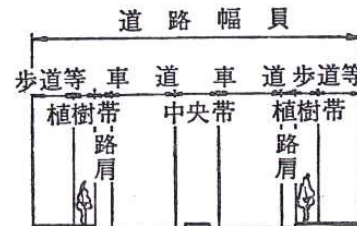 道路幅員
歩道等 車道 車道 歩道等
植樹帯 中央帯 植樹帯
路肩 路肩